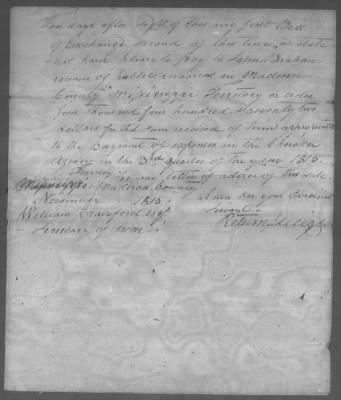 Ten days after Sight of this my first Bill
of Exchange second of this tenor & date
not paid please to pay to Colonel Graham
receiver of Public monies in Madison
County Mississippi Territory or order
four thousand four hundred & seventy two
dollars for that sum received of him
to the payment of expenses in the
Agency in the 3rd quarter of the year 1815.
pr my letter of advice of this date.
Mississippi Madison County
November 1815.
I am Sir your
William Crawford esqr
Servant
Return J. Meigs
Secretary of War